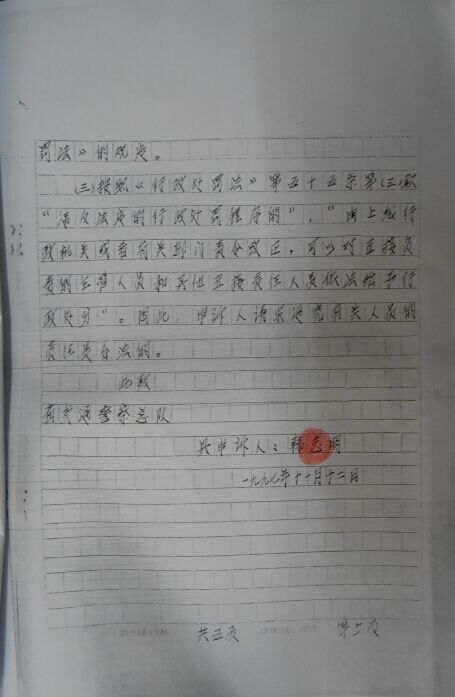 罚法》的规定。
(三)按照《行政处罚法》第五十五条第(三)款
“违反法定的行政处罚程序的”,“由上级行
政机关或者有关部门责令改正,可以对直接负
责的主管人员和其他直接责任人员依法给予行
政处分”。因此,申诉人请求追究有关人员的
责任是合法的。
此致
省交通警察总队
申诉人:韩志明
一九九七年十一月十二日
共五页 第五页